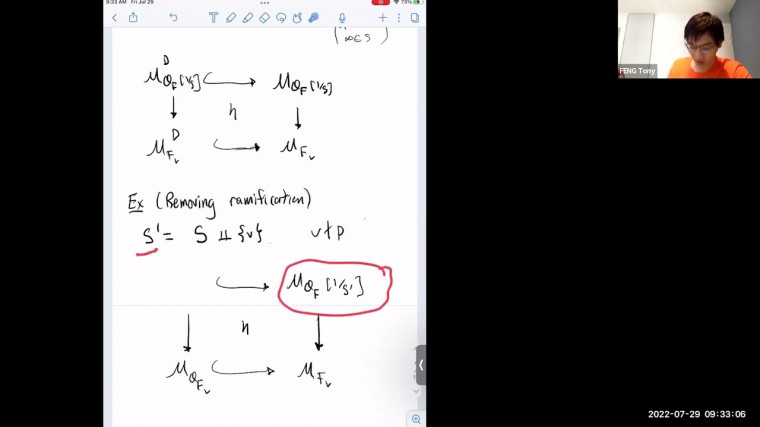 9:33 AM Fri Jul 29
73%
∞∈S
M^D_{O_F[1/S]} ↪ M_{O_F[1/S]}
↓ h ↓
M^D_{F_v} ↪ M_{F_v}
Ex (Removing ramification)
S' = S ⊔ {v} v∤p
↪ M_{O_F[1/S']}
↓ h ↓
M_{O_{F_v}} ↪ M_{F_v}
FENG Tony
2022-07-29 09:33:06